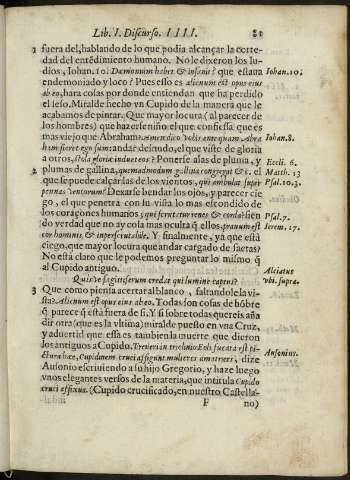 Lib. I. Discurso. IIII. 81
2 fuera del, hablando de lo que podia alcançar la corte-
dad del entẽdimiento humano. No le dixeron los Iu-
dios, Iohan. 10. Dæmonium habet & insanit? que estaua Iohan. 10.
endemoniado y loco? Pues esso es alienum est opus eius
ab eo, hara cosas por donde entiendan que ha perdido
el seso. Miralde hecho vn Cupido de la manera que le
acabamos de pintar. Que mayor locura (al parecer de
los hombres) que hazerse niño, el que confiessa que es
mas viejo que Abraham? Amen dico vobis antequam Abra Iohan. 8.
ham fieret ego sum: andar desnudo, el que viste de gloria
a otros, stola gloriæ induet eos? Ponerse alas de pluma, y Eccli. 6.
plumas de gallina, quemadmodum gallina congregat &c. el Matth. 23
que se puede calçar las de los vientos, qui ambulas super Psal. 10.3.
pennas ventorum? Dexarse bendar los ojos, y parecer cie
go, el que penetra con su vista lo mas escondido de
los coraçones humanos, qui scrutatur renes & corda? sien Psal. 7.
do verdad que no ay cosa mas oculta q̃ ellos, prauum est Ierem. 17.
cor hominis & inperscrutabile. Y finalmente, ya que está
ciego, que mayor locura que andar cargado de saetas?
No està claro que le podemos preguntar lo mismo q̃
al Cupido antiguo. Alciatus
Quis te sagittiferum credat qui lumine captus? vbi. supra.
3 Que como piensa acertar al blanco, faltandole la vi-
sta? Alienum est opus eius ab eo. Todas son cosas de hõbre
q̃ parece q̃ està fuera de si. Y si sobre todas quereis aña
dir otra (que es la vltima) miralde puesto en vna Cruz,
y aduertid que essa es tambien la muerte que dieron
los antiguos a Cupido. Treueris in triclinio Eoli fucata est pi-
ctura hæc, Cupidinem cruci affigunt mulieres amatrices, dize Ausonius.
Ausonio escriuiendo a su hijo Gregorio, y haze luego
vnos elegantes versos de la materia, que intitula Cupido
cruci affixus. (Cupido crucificado, en nuestro Castella-
F no)